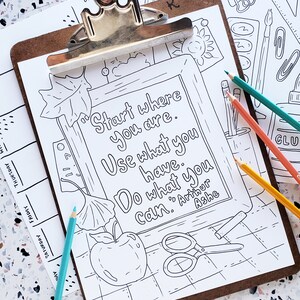 Start where
you are.
Use what you
have.
Do what you
can.
~Arthur
Ashe
GLUE